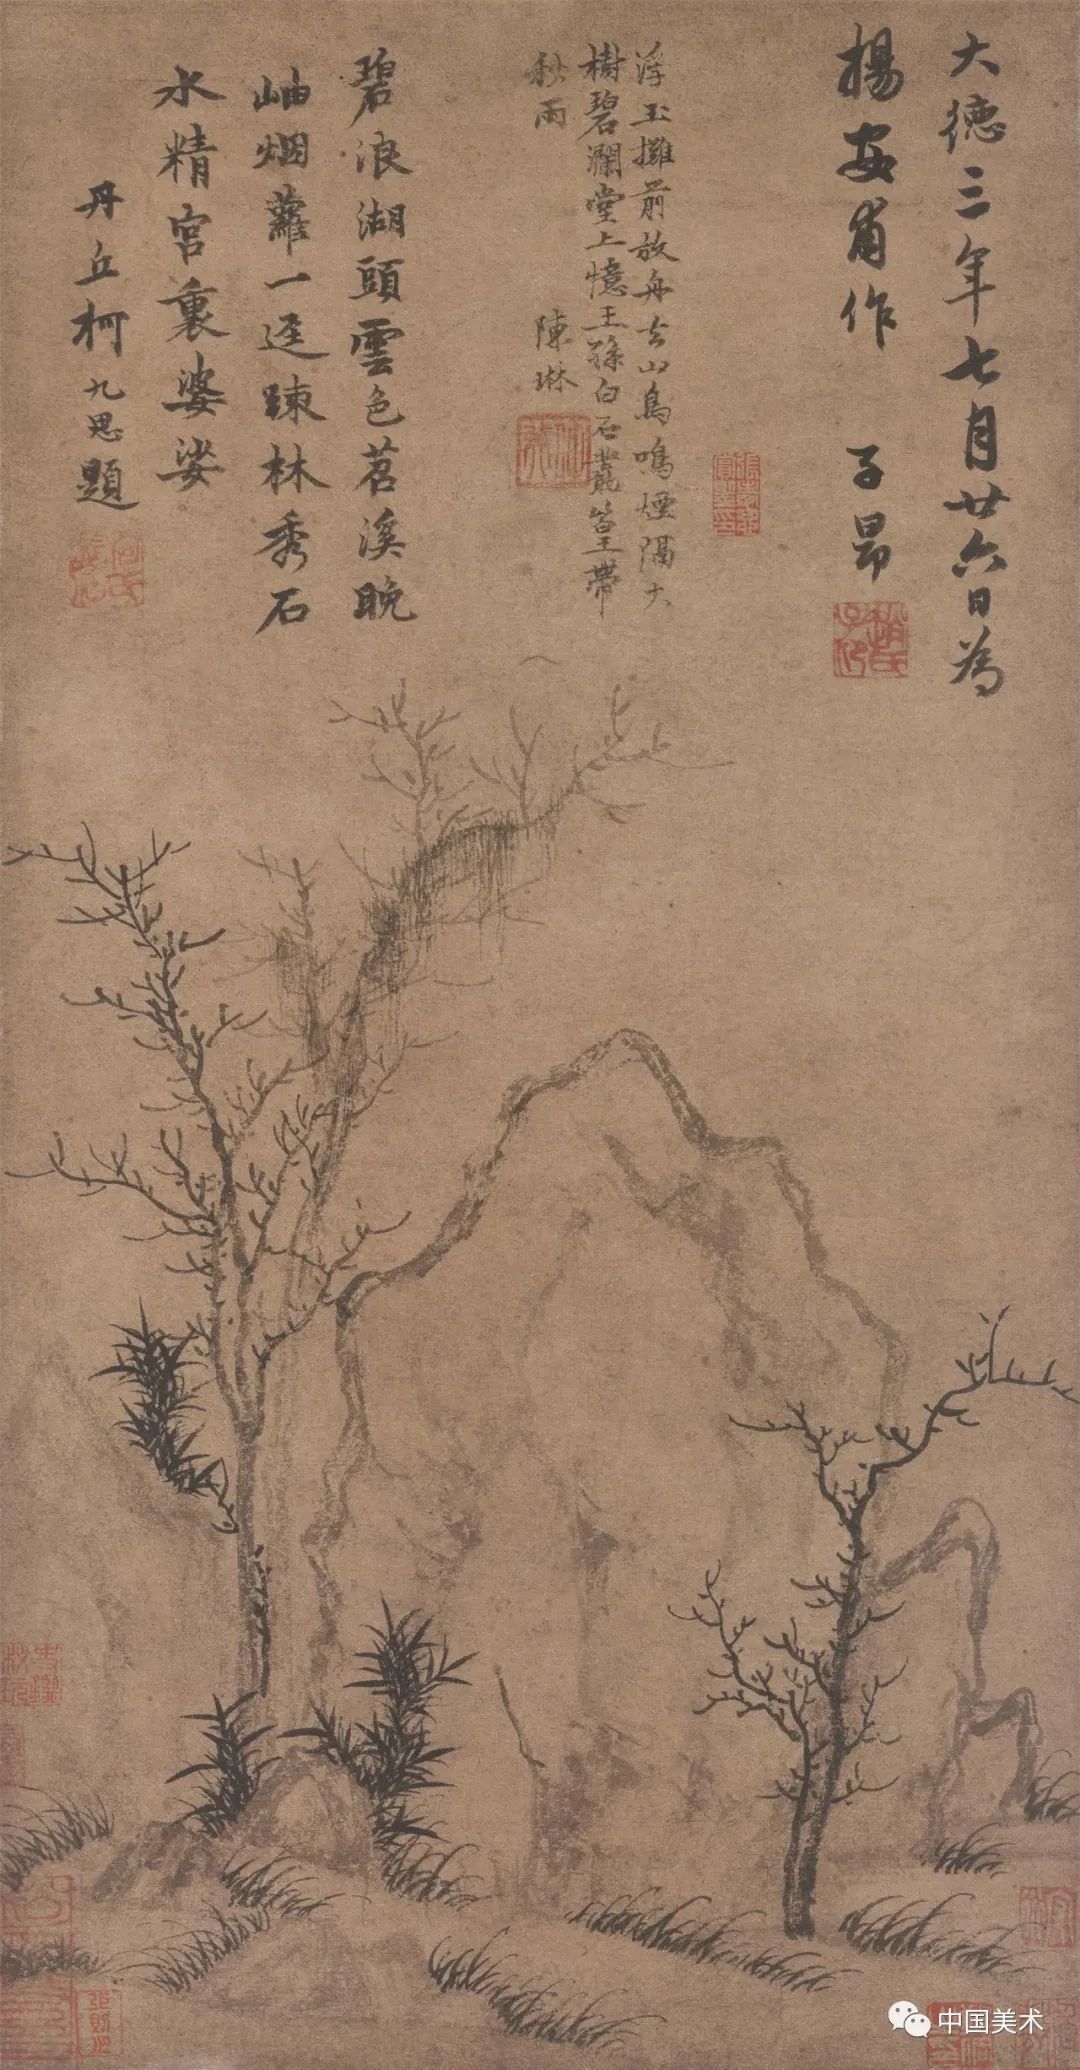 大德三年七月廿六日為
揚安甫作 子昂
浮玉攤前放舟去山鳥鳴煙隔大
樹碧瀾堂上憶王孫白石叢篁帶
秋雨 陳琳
碧浪湖頭雲色苕溪晚
岫烟蘿一逕踈林秀石
水精宮裏婆娑
丹丘柯九思題
趙氏子昂
中国美术